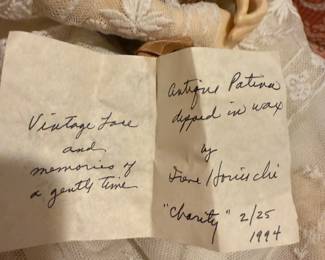 Vintage Lace
and
memories of
a gentle time
Antique Patina
dipped in wax
by
Irene
"Charity" 2/25
1994